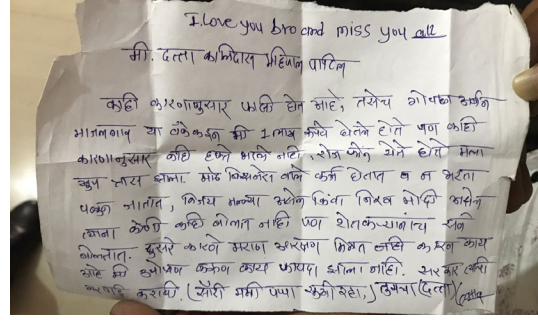 I love you bro and miss you all
मी. दत्ता कालिदास महिपाल पाटिल
काही कारणानुसार फाशी घेत आहे, तसेच अर्बन
माजलगाव या बँकेकडून मी 1 लाख रुपये घेतले होते पण काही
कारणानुसार काही हप्ते भरले नाही, रोज फोन येत होते मला
खुप त्रास झाला. मोठे बिझनेस वाले कर्ज घेतात व न भरता
पळून जातात, विजय मल्ल्या असेल किंवा निरव मोदी असेल
त्यांना कोणी काही बोलत नाही पण शेतकऱ्यांनाच सगळे
बोलतात. दुसरे कारण मराठा आरक्षण मिळत नाही करून काय
आहे मी काय फायदा झाला नाही. सरकार
करावी. (सॉरी मम्मी पप्पा सुखी रहा,) तुमचा (दत्ता)